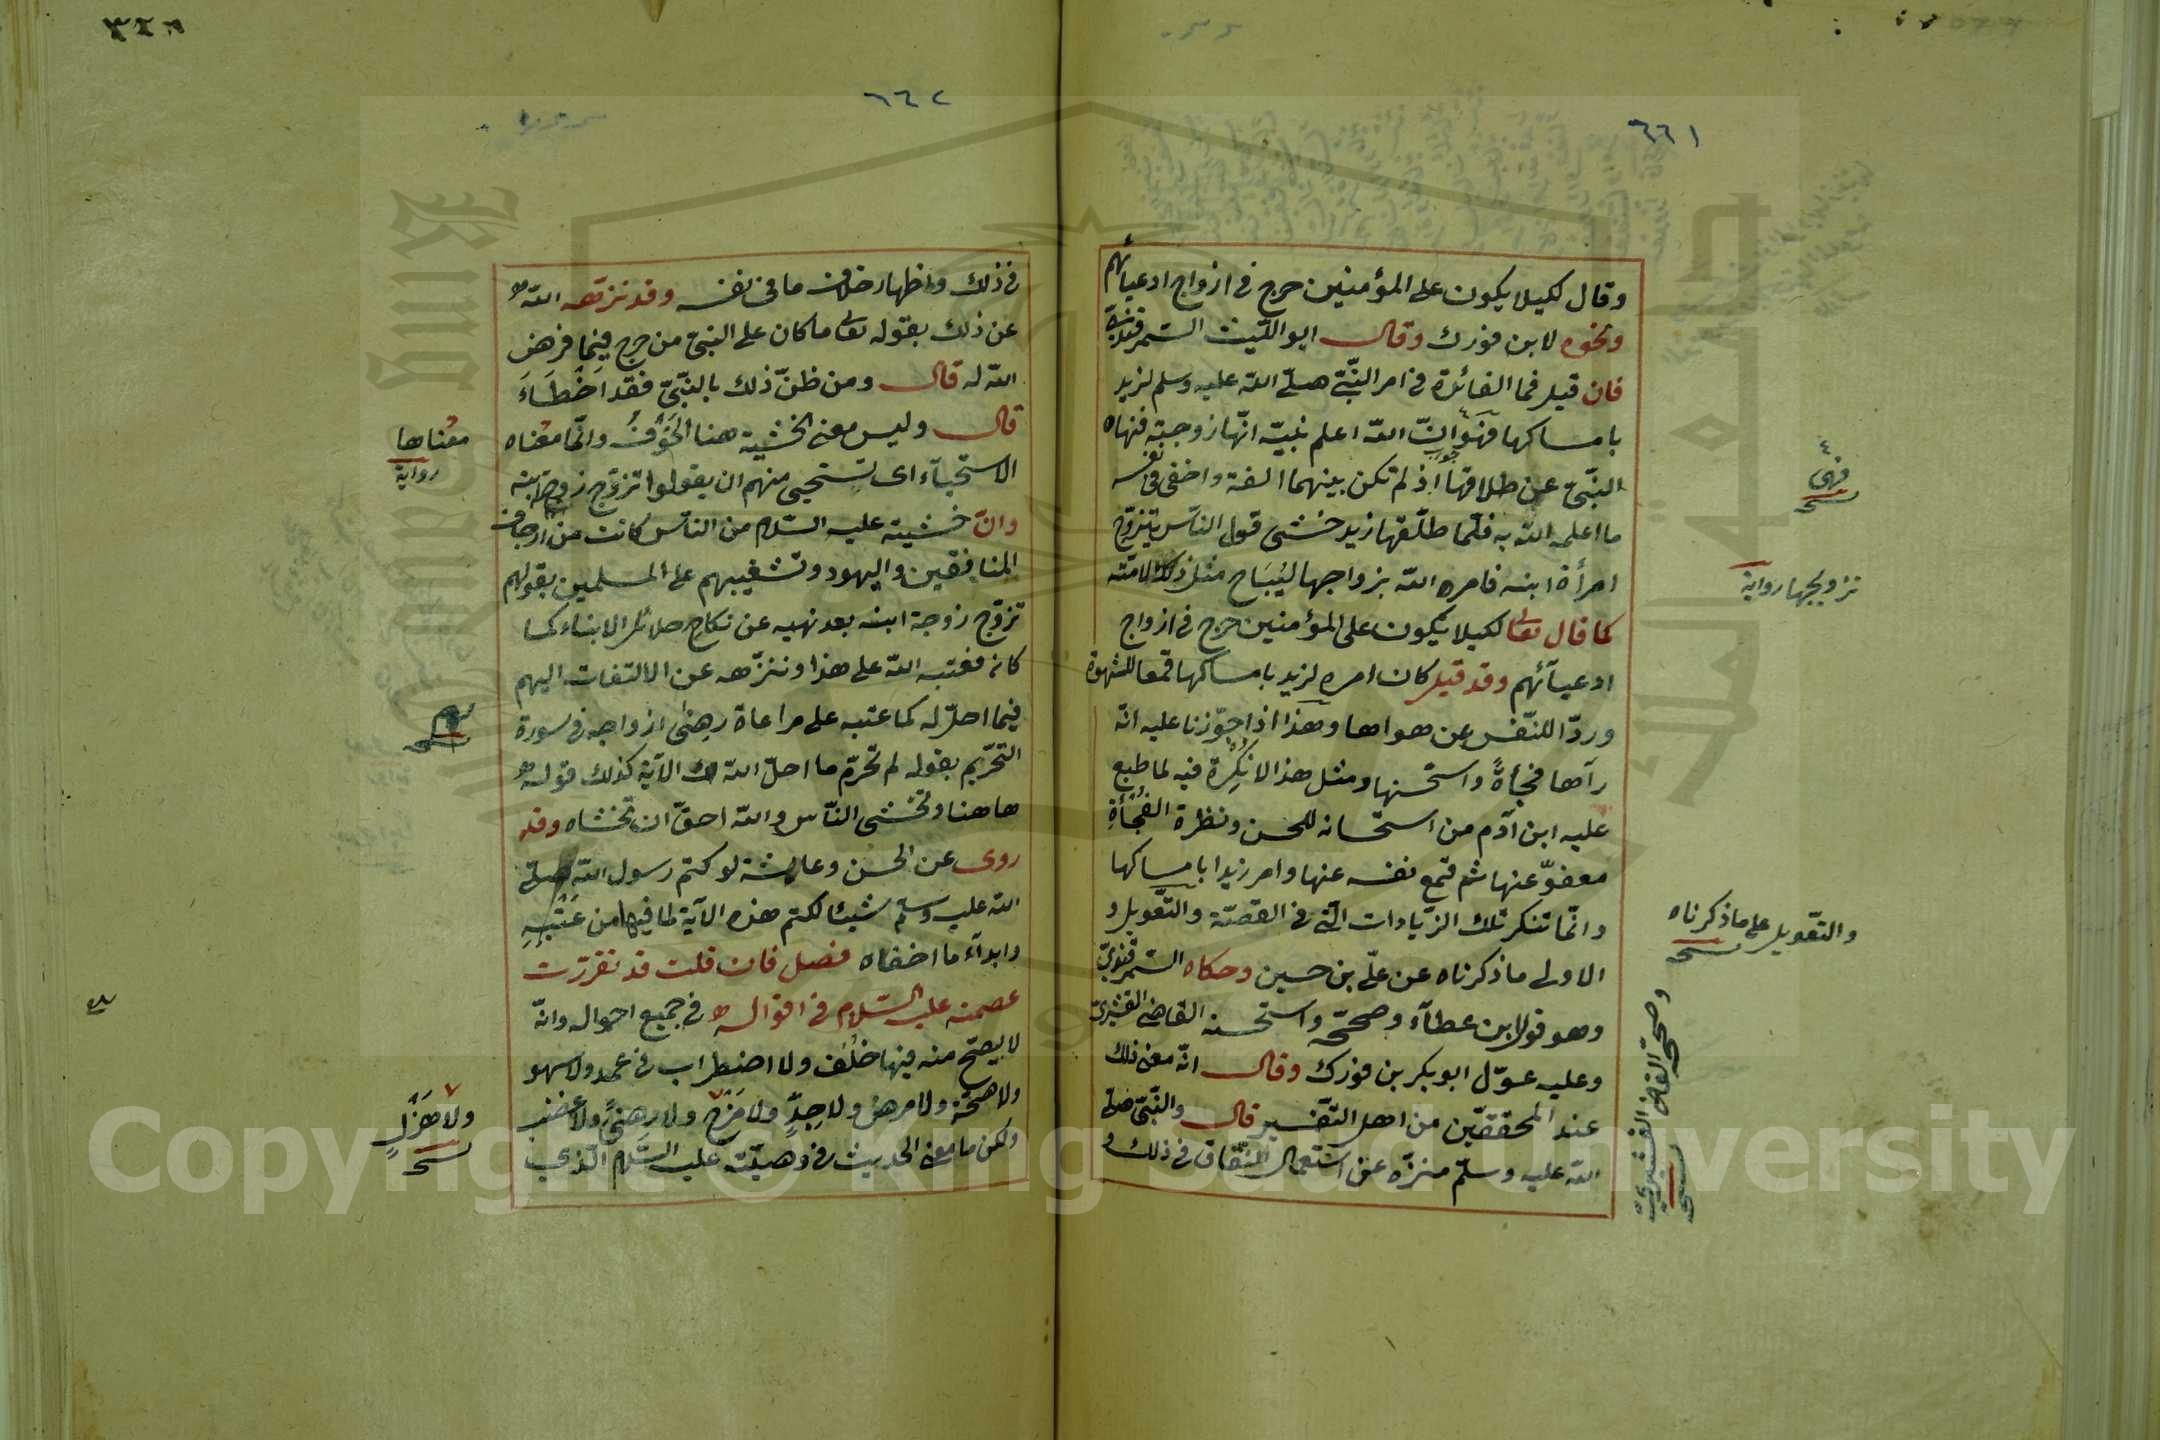 ٦٦١
وقال لكيلا يكون على المؤمنين حرج في ازواج ادعيائهم
ونحوه لابن فورك وقال ابو الليث السمرقندي
فان قيل فما الفائدة في امر النبي صلى الله عليه وسلم لزيد
بامساكها فهو ان الله اعلم نبيه انها زوجته فنهاه
النبي عن طلاقها اذ لم تكن بينهما الفة واخفى في نفسه
ما اعلمه الله به فلما طلقها زيد خشى قول الناس يتزوج
امرأة ابنه فامره الله بزواجها ليباح مثل ذلك لامته
كما قال تعالى لكيلا يكون على المؤمنين حرج في ازواج
ادعيآئهم وقد قيل كان امره لزيد بامساكها قمعا للشهوة
وردّا للنفس عن هواها وهذا اذا جوّزنا عليه انه
رآها فجأة واستحسنها ومثل هذا لا نكرة فيه لما طبع
عليه ابن آدم من استحسانه للحسن ونظرة الفجأة
معفوّ عنها ثم قمع نفسه عنها وامر زيدا بامساكها
وانما تنكر تلك الزيادات التي في القصة والتعويل و
الاولى ما ذكرناه عن علي بن حسين وحكاه السمرقندي
وهو قول ابن عطآء وصححه واستحسنه القاضي القشيري
وعليه عوّل ابو بكر بن فورك وقال انه معنى ذلك
عند المحققين من اهل التفسير قال والنبي صلى
الله عليه وسلم منزّه عن استعمال النفاق في ذلك و
فنهى
نسخه
تزويجها رواية
والتعويل على ما ذكرناه
نسخه
وصححه القاضي القشيري
نسخه
٦٦٢
في ذلك واظهار خلاف ما في نفسه وقد نزهه الله
عن ذلك بقوله تعالى ما كان على النبي من حرج فيما فرض
الله له قال ومن ظن ذلك بالنبي فقد اخطاء
قال وليس معنى الخشية هنا الخوف وانما معناه
الاستحيآء اى يستحيى منهم ان يقولوا تزوج زوجة ابنه
وان خشيته عليه السلام من الناس كانت من ارجاف
المنافقين واليهود وتشغيبهم على المسلمين بقولهم
تزوج زوجة ابنه بعد نهيه عن نكاح حلائل الابناء كما
كان فعتبه الله على هذا ونزّهه عن الالتفات اليهم
فيما احل له كما عتبه على مراعاة رضى ازواجه في سورة
التحريم بقوله لم تحرّم ما احل الله لك الآية كذلك قوله
هاهنا وتخشى الناس والله احق ان تخشاه وقد
روى عن الحسن وعائشة لو كتم رسول الله صلى
الله عليه وسلم شيئا لكتم هذه الآية لما فيها من عتبه
وابدآء ما اخفاه فصل فان قلت قد تقررت
عصمته عليه السلام في اقواله في جميع احواله وانه
لا يصح منه فيها خلف ولا اضطراب في عمد ولا سهو
ولا صحة ولا مرض ولا جدّ ولا مزح ولا رضى ولا غضب
ولكن ما معنى الحديث في وصيته عليه السلام الذي
معناها
رواية
ولا هزل
نسخه
Copyright © King Saud University